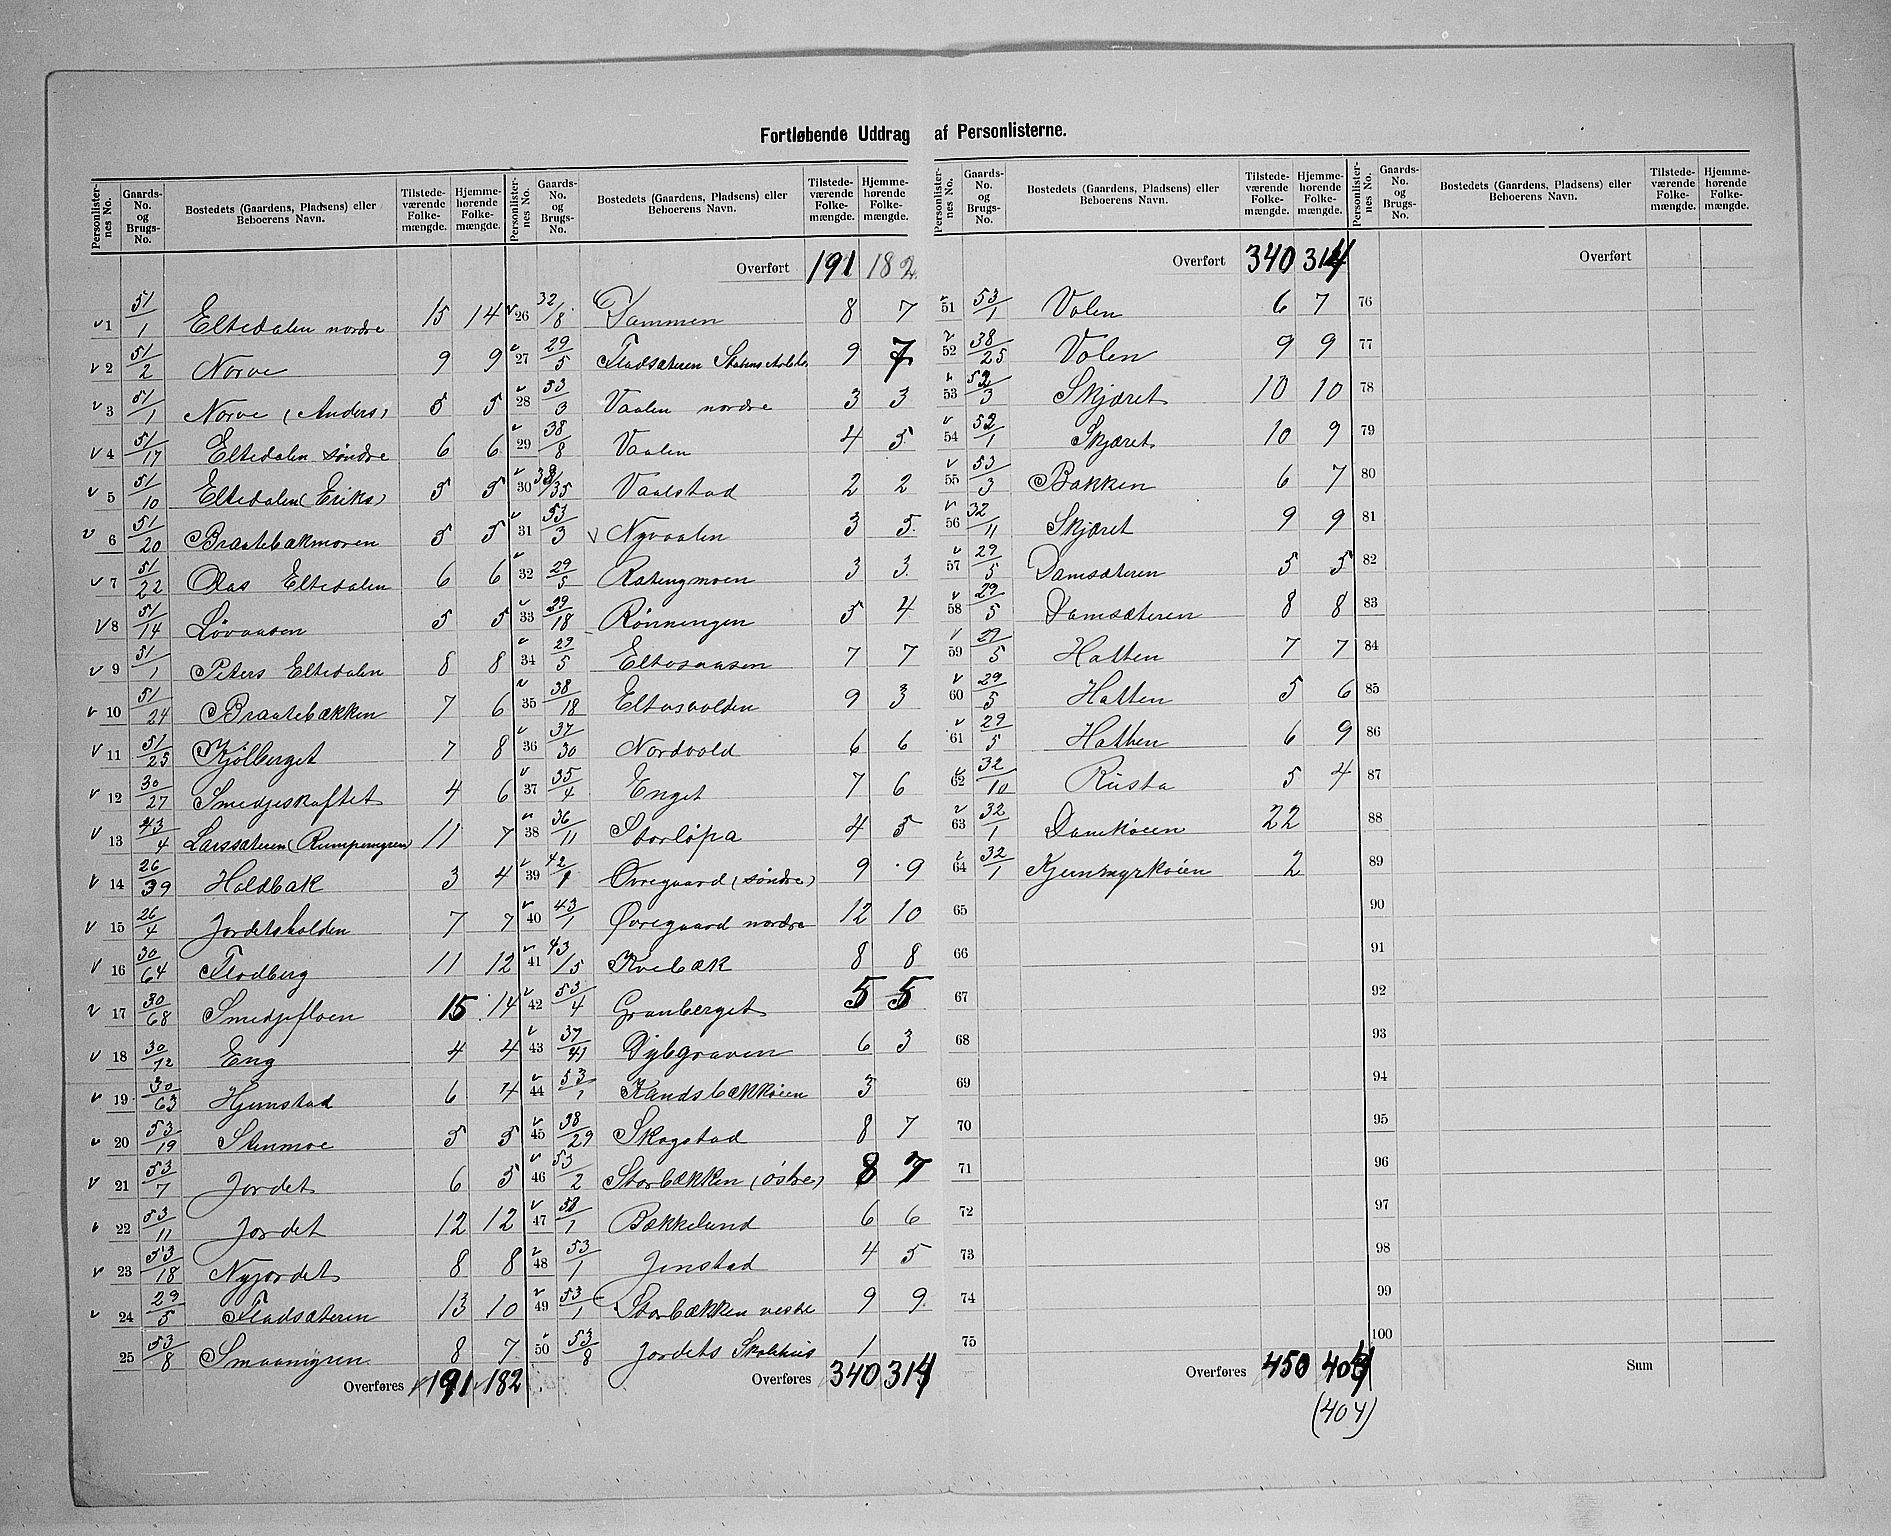 Fortløbende Uddrag af Personlisterne.
Personlisternes No. Gaards-No. og Brugs-No. Bostedets (Gaardens, Pladsens) eller Beboerens Navn. Tilstedeværende Folkemængde. Hjemmehørende Folkemængde.
v 1 51/1 Eltedalen nordre 15 14
v 2 51/2 Norve 9 9
v 3 51/1 Norve (Anders) 5 5
v 4 51/17 Eltedalen søndre 6 6
v 5 51/10 Eltedalen (Eriks) 5 5
v 6 51/20 Braatebækmoren 5 5
v 7 51/22 Olas Eltedalen 6 6
v 8 51/14 Løvaasen 5 5
v 9 51/1 Peters Eltedalen 8 8
v 10 51/24 Braatebækken 7 6
v 11 51/25 Kjølberget 7 8
v 12 30/27 Smedjeskaftet 4 6
v 13 43/4 Larssæteren (Rumpemyren) 11 7
v 14 26/39 Holdbak 3 4
v 15 26/4 Jordetsholden 7 7
v 16 30/64 Flodberg 11 12
v 17 30/68 Smedjefloen 15 14
v 18 30/72 Eng 4 4
v 19 30/63 Hjemstad 6 4
v 20 53/19 Stenmoe 5 5
v 21 53/7 Jordet 6 5
v 22 53/11 Jordet 12 12
v 23 53/18 Nyjordet 8 8
v 24 29/5 Fladsæteren 13 10
25 53/8 Smaamyren 8 7
Overføres 191 182
Personlisternes No. Gaards-No. og Brugs-No. Bostedets (Gaardens, Pladsens) eller Beboerens Navn. Tilstedeværende Folkemængde. Hjemmehørende Folkemængde.
Overført 191 182
v 26 32/8 Dammen 8 7
v 27 29/5 Fladsæteren 9 7
v 28 53/3 Vaalen nordre 3 3
v 29 38/8 Vaalen 4 5
v 30 38/35 Vaalstad 2 2
v 31 53/3 v Nyvaalen 3 5
v 32 29/5 Ratengmoen 3 3
v 33 29/18 Rønningen 5 4
v 34 29/5 Eltosaasen 7 7
v 35 38/18 Eltosvolden 9 3
v 36 37/30 Nordvold 6 6
v 37 35/4 Enget 7 6
v 38 36/11 Storløpa 4 5
v 39 42/1 Øvregaard (søndre) 9 9
v 40 43/1 Øvregaard nordre 12 10
v 41 43/15 Kvebæk 8 8
v 42 53/4 Granberget 5 5
v 43 37/41 Dybgraven 6 3
v 44 53/1 Kandsbækkøien 3
v 45 38/29 Skogstad 8 7
v 46 53/2 Storbækken (østre) 8 7
v 47 /1 Bækkelund 6 6
v 48 53/1 Jenstad 4 5
v 49 53/1 Storbækken vestre 9 9
v 50 53/8 Jordets Skolehus 1
Overføres 340 314
Personlisternes No. Gaards-No. og Brugs-No. Bostedets (Gaardens, Pladsens) eller Beboerens Navn. Tilstedeværende Folkemængde. Hjemmehørende Folkemængde.
Overført 340 314
v 51 53/1 Volen 6 7
v 52 38/25 Volen 9 9
v 53 52/3 Skjæret 10 10
v 54 52/1 Skjæret 10 9
v 55 53/3 Bakken 6 7
v 56 32/11 Skjæret 9 9
v 57 29/5 Damsæteren 5 5
v 58 29/5 Damsæteren 8 8
v 59 29/5 Hatten 7 7
v 60 29/5 Hatten 5 6
v 61 29/5 Hatten 6 9
v 62 32/10 Rusta 5 4
v 63 32/1 Damkøien 22
v 64 32/1 Kjernmyrkøien 2
65
66
67
68
69
70
71
72
73
74
75
Overføres 450 404
(404)
Personlisternes No. Gaards-No. og Brugs-No. Bostedets (Gaardens, Pladsens) eller Beboerens Navn. Tilstedeværende Folkemængde. Hjemmehørende Folkemængde.
Overført
76
77
78
79
80
81
82
83
84
85
86
87
88
89
90
91
92
93
94
95
96
97
98
99
100
Sum